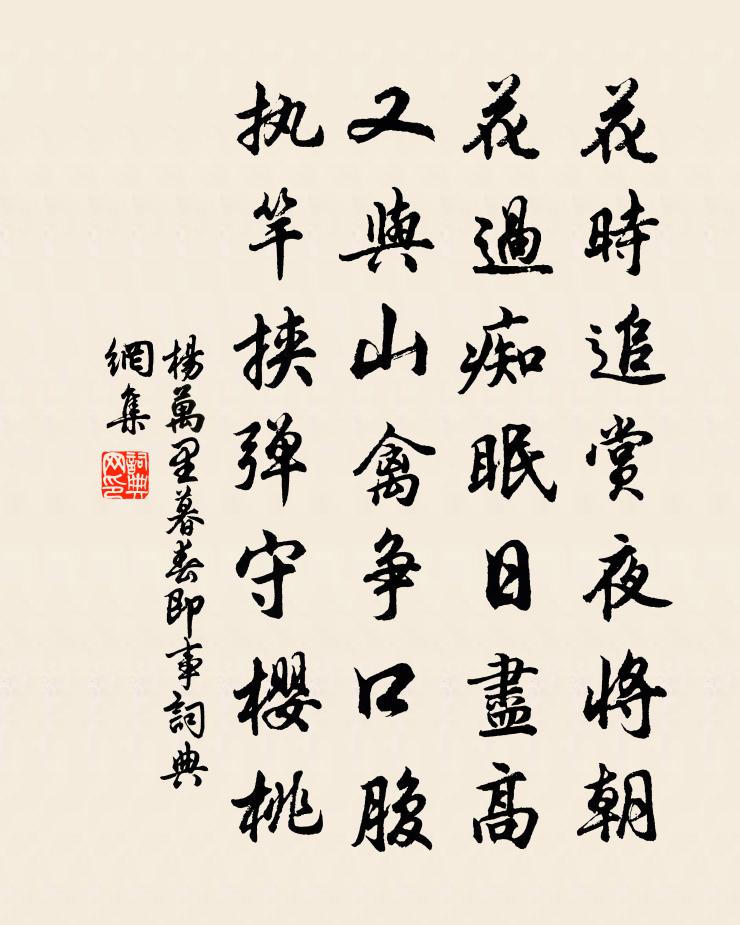 花時追賞夜將朝
花過痴眠日盡高
又與山禽争口腹
执竿挟弹守櫻桃
楊萬里暮春即事詞典
網集
詞典網印